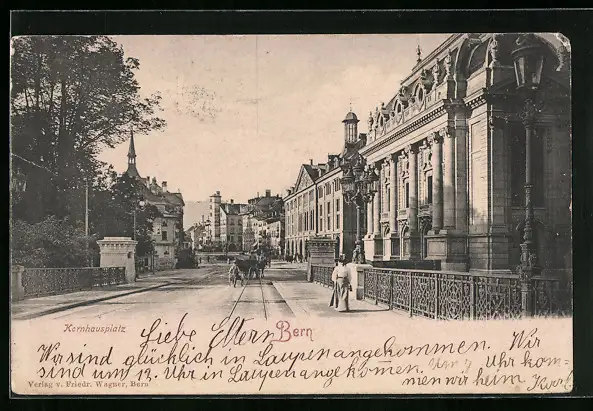 Kornhausplatz
Bern
Liebe Eltern
Wir sind glücklich in Laupen angekommen. Wir
sind um 12. Uhr in Laupen angekomen. Um 7 Uhr kom-
men wir heim Karl
Verlag v. Friedr. Wagner, Bern